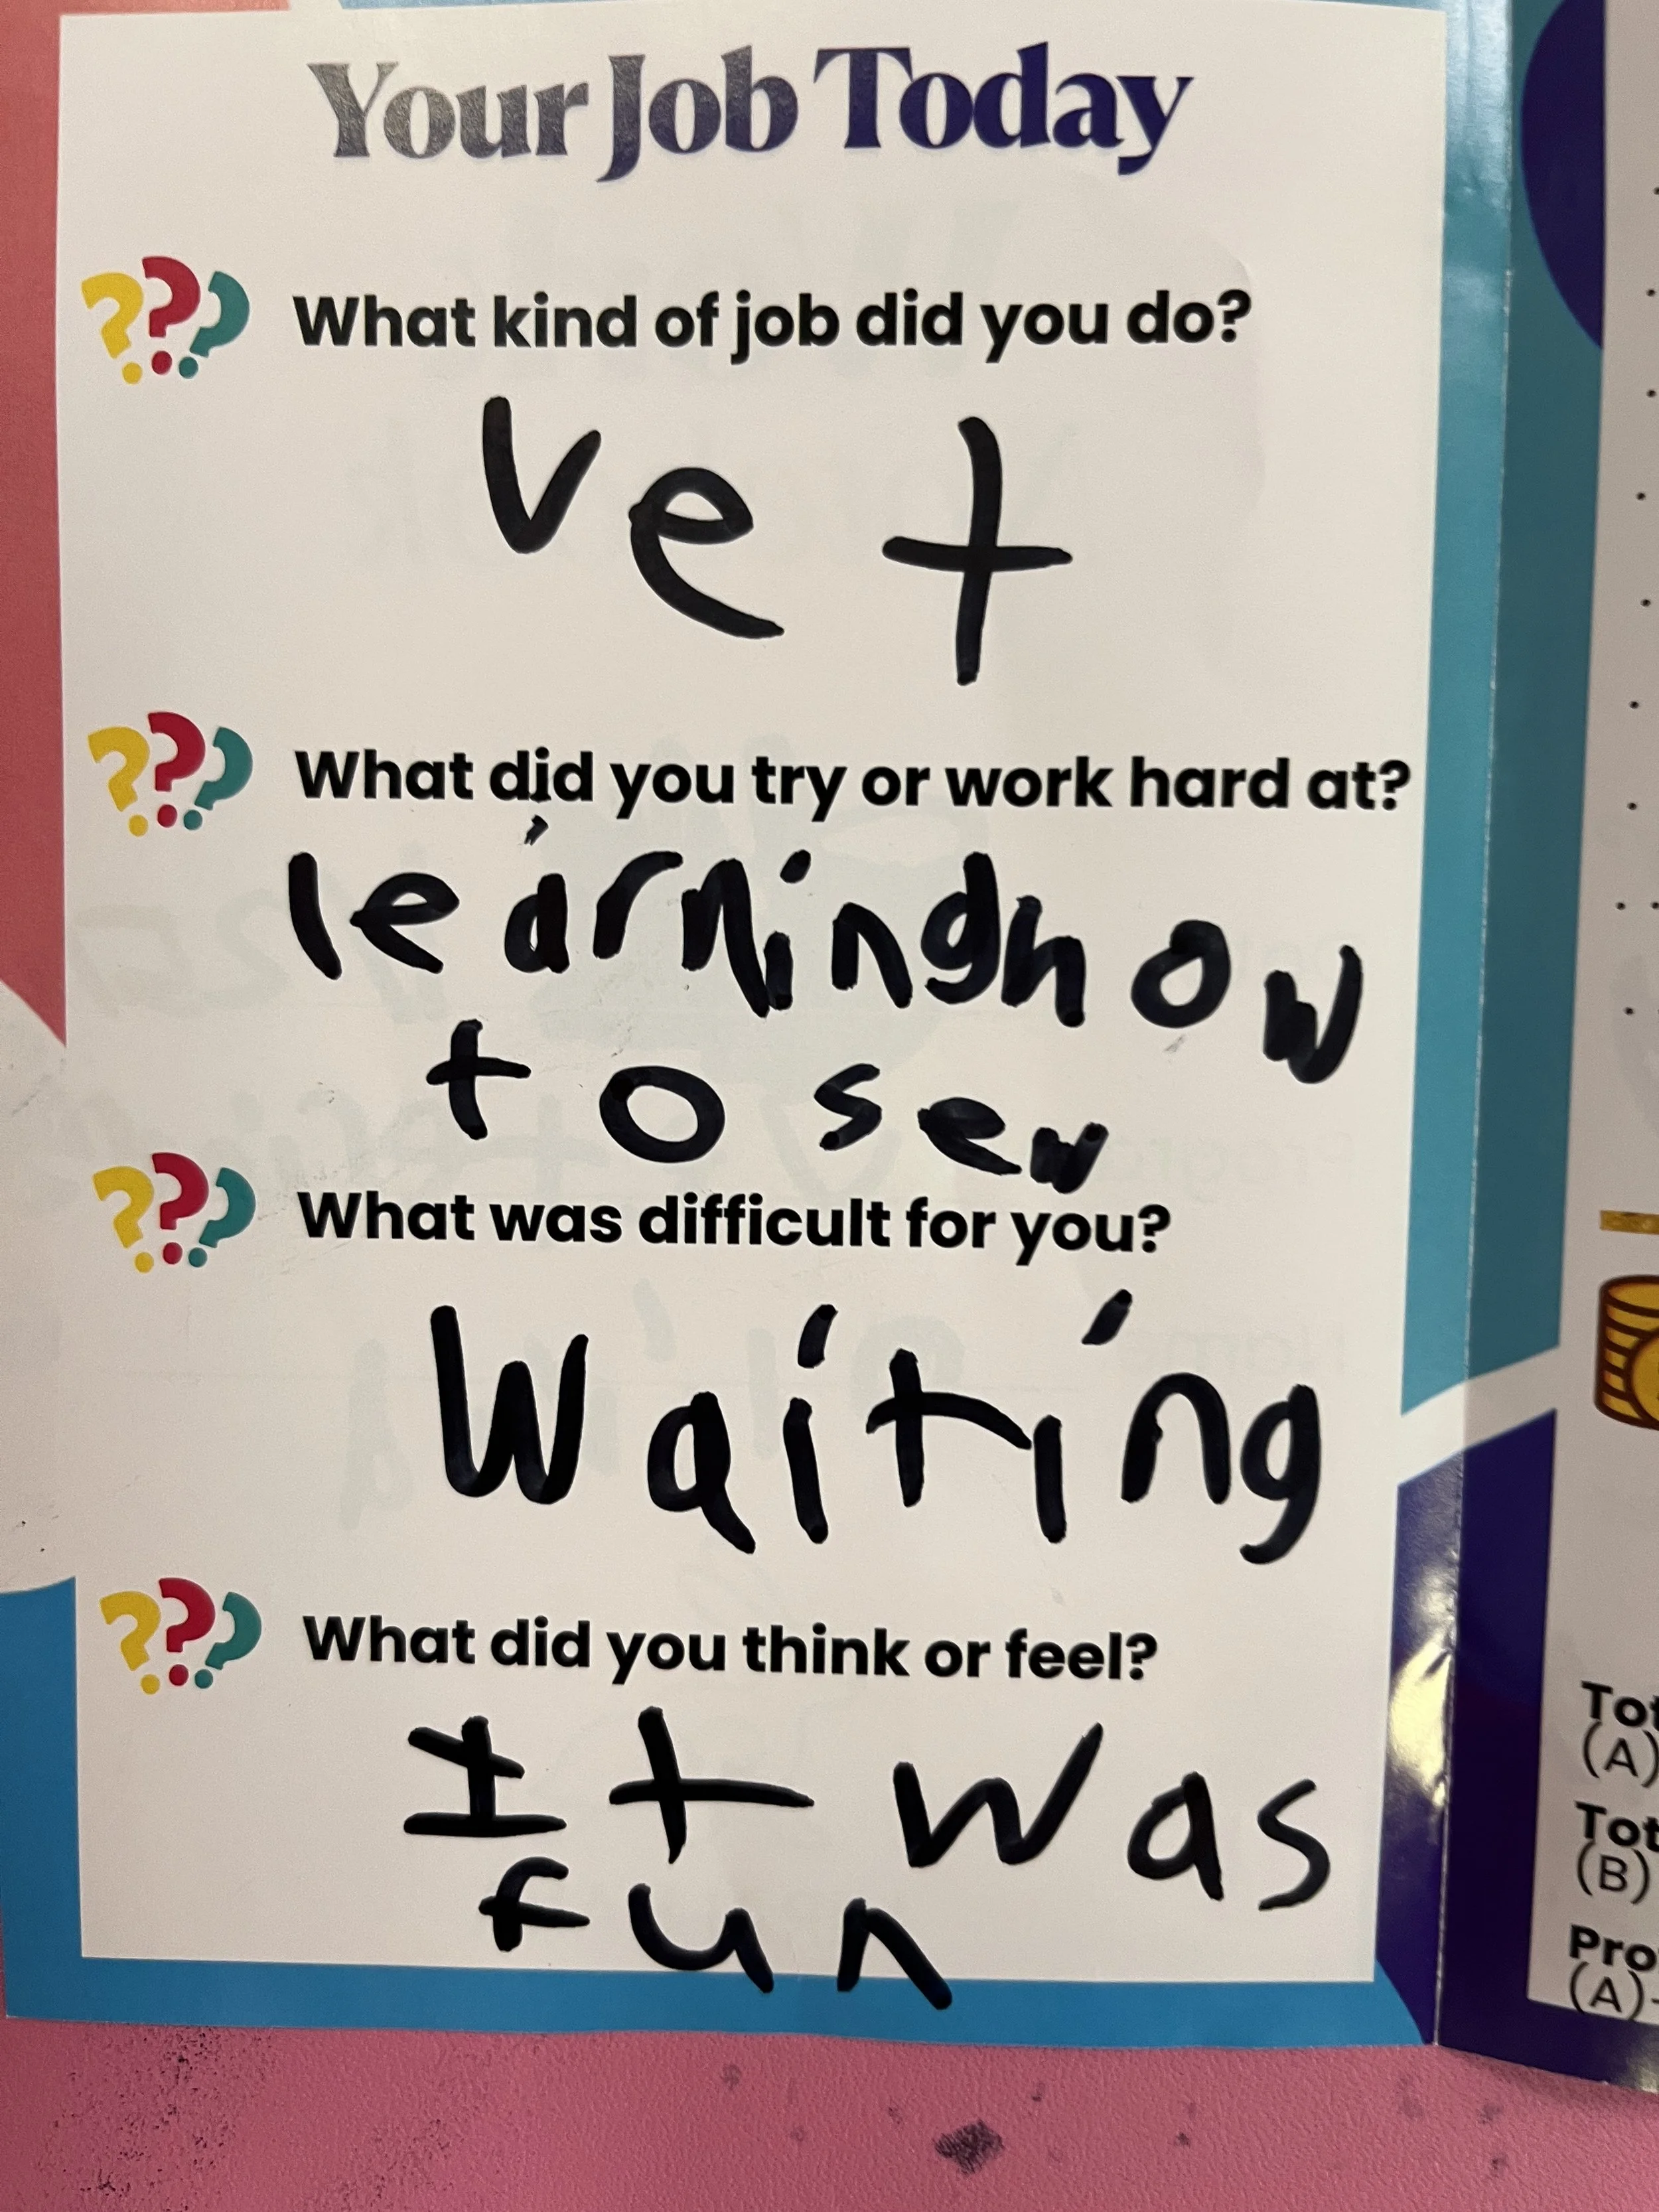 Your Job Today
??? What kind of job did you do?
vet
??? What did you try or work hard at?
learning how
to sew
??? What was difficult for you?
Waiting
??? What did you think or feel?
It was
fun
Tot
(A)
Tot
(B)
Pro
(A)-